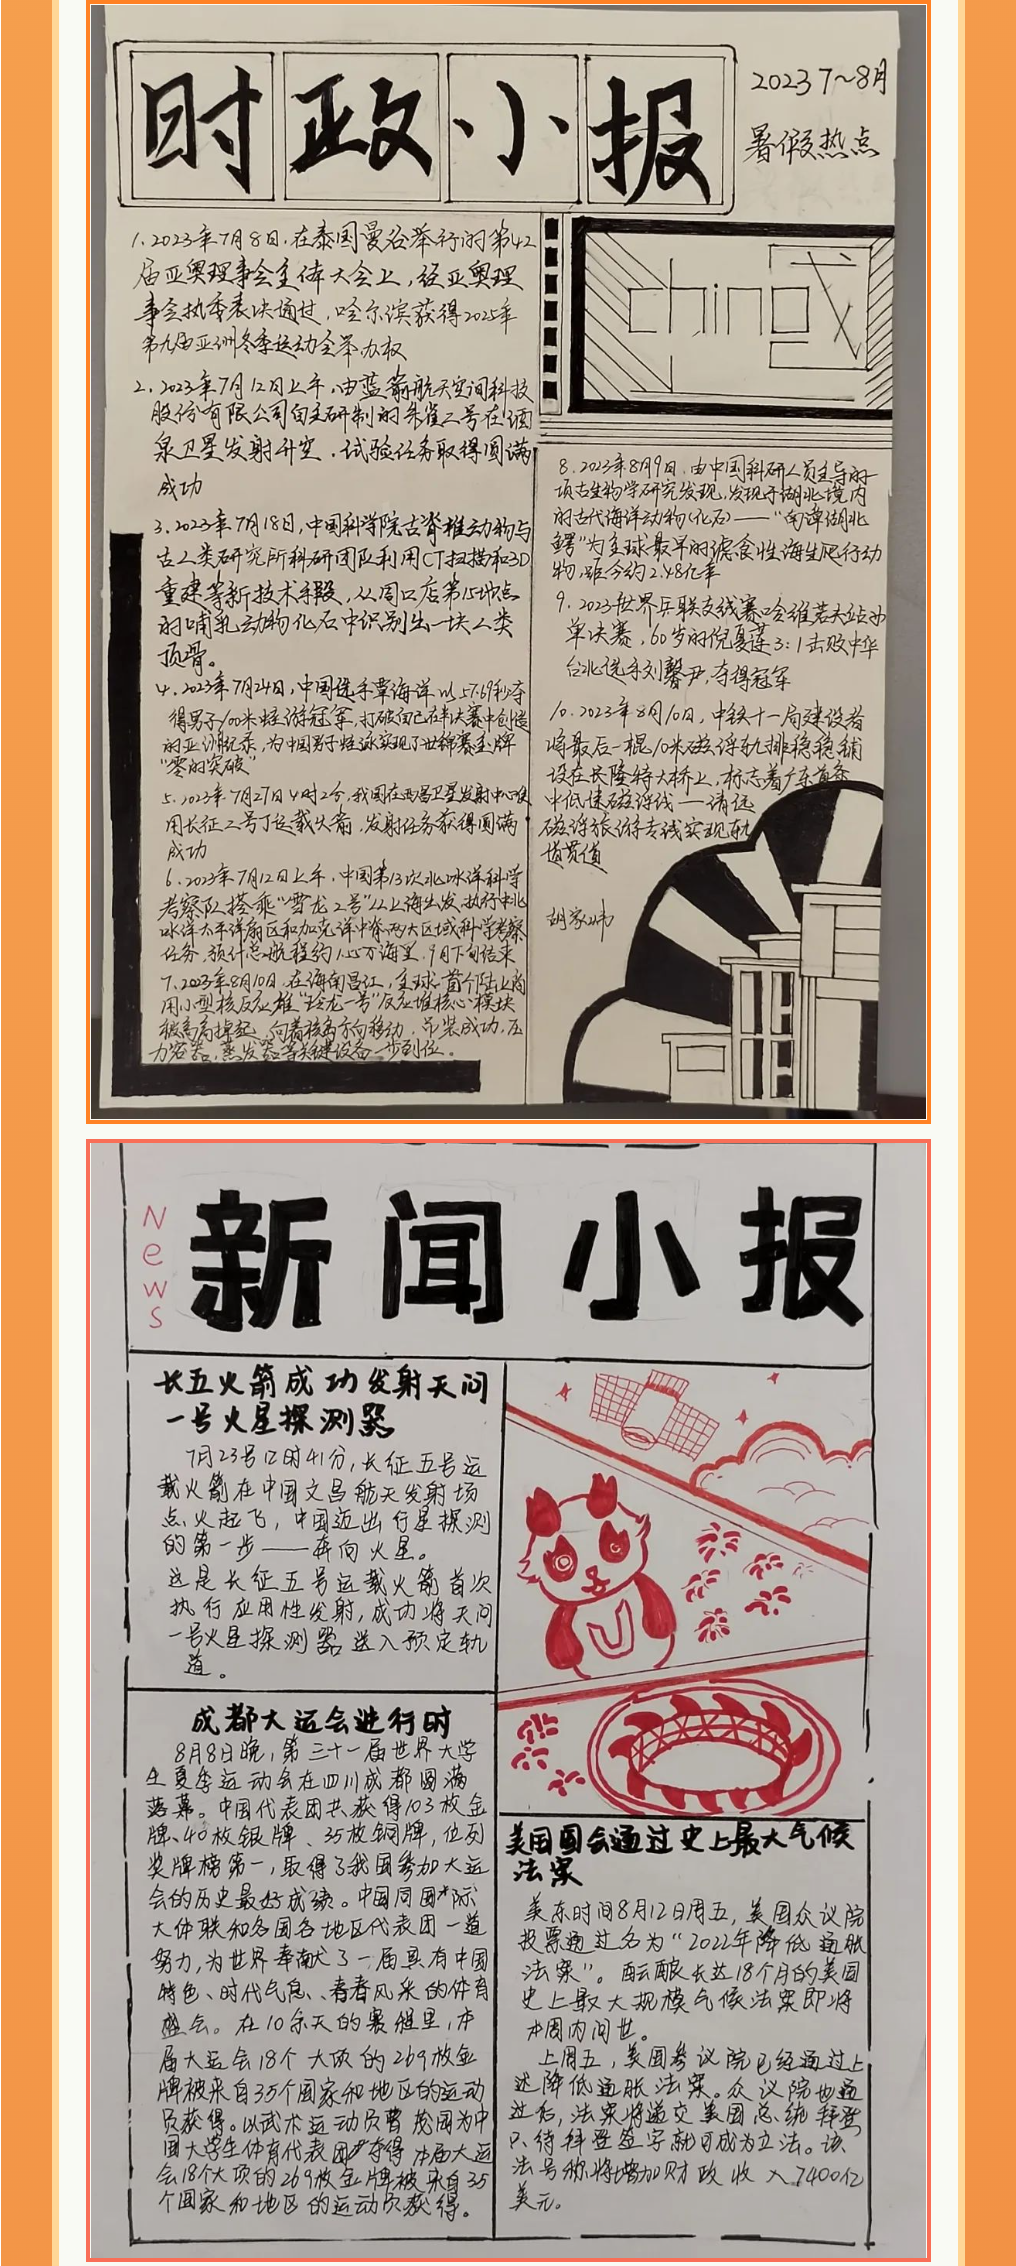 时政小报
2023 7~8月
暑假热点
1.2023年7月8日,在泰国曼谷举行的第42
届亚奥理事会全体大会上,经亚奥理
事会执委表决通过,哈尔滨获得2025年
第九届亚洲冬季运动会举办权
2.2023年7月12日上午,由蓝箭航天空间科技
股份有限公司自主研制的朱雀二号在酒
泉卫星发射升空,试验任务取得圆满
成功
3.2023年7月18日,中国科学院古脊椎动物与
古人类研究所科研团队利用CT扫描和3D
重建等新技术手段,从周口店第15地点
的哺乳动物化石中识别出一块人类
顶骨。
4.2023年7月24日,中国选手覃海洋以57.69秒夺
得男子100米蛙泳冠军,打破自己在半决赛中创造
的亚洲纪录,为中国男子蛙泳实现了世锦赛金牌
“零的突破”
5.2023年7月27日4时2分,我国在西昌卫星发射中心使
用长征二号丁运载火箭,发射任务获得圆满
成功
6.2023年7月12日上午,中国第13次北冰洋科学
考察队搭乘“雪龙2号”从上海出发,执行中北
冰洋太平洋扇区和加克洋中脊两大区域科学考察
任务,预计总航程约1.55万海里,9月下旬结束
7.2023年8月10日,在海南昌江,全球首个陆上商
用小型核反应堆“玲龙一号”反应堆核心模块
被高高撑起,向着核岛方向移动,吊装成功,压
力容器,蒸发器等关键设备一步到位。
china
8.2023年8月9日,由中国科研人员主导的一
项古生物学研究发现,发现于湖北境内
的古代海洋动物(化石)——“南漳湖北
鳄”为全球最早的滤食性海生爬行动
物,距今约2.48亿年
9.2023世界乒联支线赛哈维若夫站女
单决赛,60岁的倪夏莲3:1击败中华
台北选手刘馨尹,夺得冠军
10.2023年8月10日,中铁十一局建设者
将最后一榀10米磁浮轨排稳稳铺
设在长隆特大桥上,标志着广东首条
中低速磁浮线——清远
磁浮旅游专线实现轨
道贯通
News
新闻小报
长五火箭成功发射天问
一号火星探测器
7月23号12时41分,长征五号运
载火箭在中国文昌航天发射场
点火起飞,中国迈出行星探测
的第一步——奔向火星。
这是长征五号运载火箭首次
执行应用性发射,成功将天问
一号火星探测器送入预定轨
道。
成都大运会进行时
8月8日晚,第三十一届世界大学
生夏季运动会在四川成都圆满
落幕。中国代表团共获得103枚金
牌、40枚银牌、35枚铜牌,位列
奖牌榜第一,取得了我国参加大运
会的历史最好成绩。中国同国际
大体联和各国各地区代表团一道
努力,为世界奉献了一届具有中国
特色、时代气息、青春风采的体育
盛会。在10余天的赛程里,本
届大运会18个大项的269枚金
牌被来自35个国家和地区的运动
员获得。以武术运动员曹茂园为中
国大学生体育代表团夺得本届大运
会18个大项的269枚金牌被来自35
个国家和地区的运动员获得。
美国国会通过史上最大气候
法案
美东时间8月12日周五,美国众议院
投票通过名为“2022年降低通胀
法案”。酝酿长达18个月的美国
史上最大规模气候法案即将
本周内问世。
上周五,美国参议院已经通过上
述降低通胀法案。众议院也通
过后,法案将递交美国总统拜登
只待拜登签字就可成为立法。该
法号称将增加财政收入7400亿
美元。